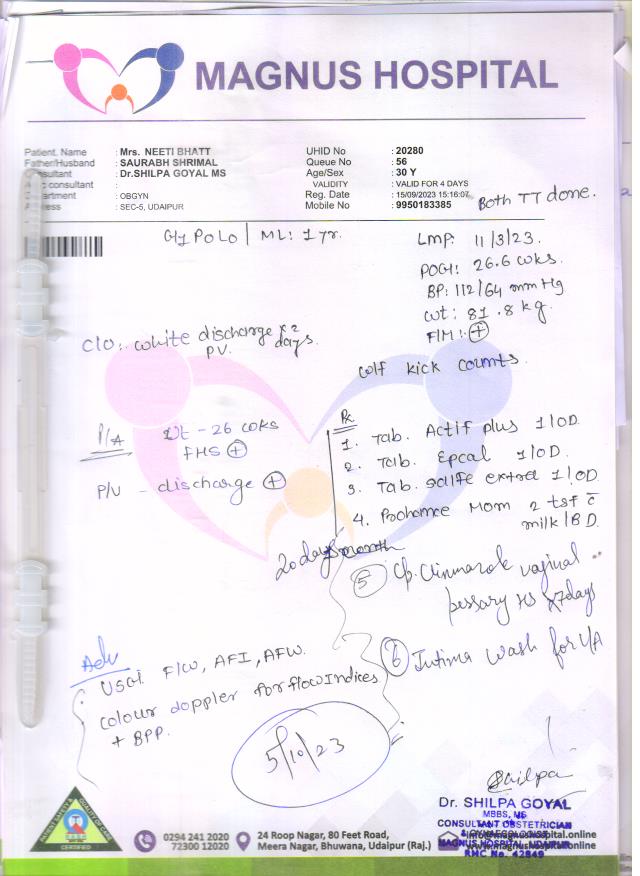 MAGNUS HOSPITAL
Patient. Name : Mrs. NEETI BHATT
Father/Husband : SAURABH SHRIMAL
: Dr.SHILPA GOYAL MS
consultant :
: OBGYN
: SEC-5, UDAIPUR
UHID No : 20280
Queue No : 56
Age/Sex : 30 Y
VALIDITY : VALID FOR 4 DAYS
Reg. Date : 15/09/2023 15:16:07
Mobile No : 9950183385
Both TT done.
G1P0L0 | ML: 1 yr.
LMP: 11/3/23.
POG: 26.6 wks.
BP: 112/64 mm Hg
wt: 81.8 kg
FM: +
C/O: white discharge x 2 days.
PV.
kick counts
P/A Ut - 26 wks
FHS +
P/V - discharge +
Rx
1. Tab. Actif plus 1/OD
2. Tab. Epcal 1/OD.
3. Tab. extra 1/OD
4. Prohance Mom 2 tsf c̄
milk/BD.
20 days month
5 Cp. vaginal
pessary HS x 7days
6 Intima wash for L/A
Adv
USG F/W, AFI, AFW.
colour doppler for flow Indices
+ BPP.
5/10/23
Shilpa
Dr. SHILPA GOYAL
MBBS, MS
CONSULTANT OBSTETRICIAN
& GYNAECOLOGIST
MAGNUS HOSPITAL, UDAIPUR
RMC No. 42849
CERTIFIED
0294 241 2020
72300 12020
24 Roop Nagar, 80 Feet Road,
Meera Nagar, Bhuwana, Udaipur (Raj.)
info@magnushospital.online
www.magnushospital.online